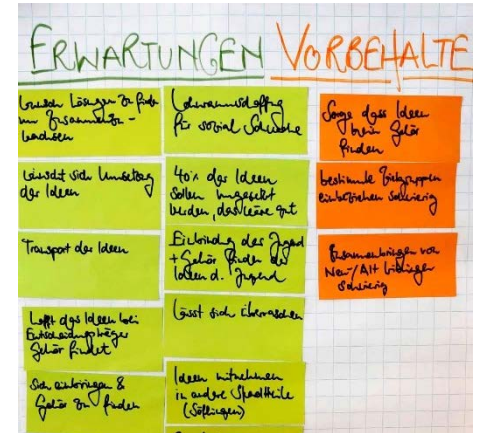 ERWARTUNGEN VORBEHALTE
Lösungen zu finden
um zusammenzu-
wachsen
wünscht sich Umsetzung
der Ideen
Transport der Ideen
hofft das Ideen bei
Entscheidungsträger
Gehör findet
Sich einbringen &
Gehör zu finden
für sozial Schwache
40% der Ideen
sollen umgesetzt
werden, das wäre gut
Einbindung der Jugend
+ Gehör finden der
Ideen d. Jugend
Lässt sich überraschen
Ideen mitnehmen
in andere Stadtteile
(Söflingen)
Sorge dass Ideen
kein Gehör
finden
bestimmte Zielgruppen
einbeziehen schwierig
Zusammenbringen von
Neu-/Alt
schwierig